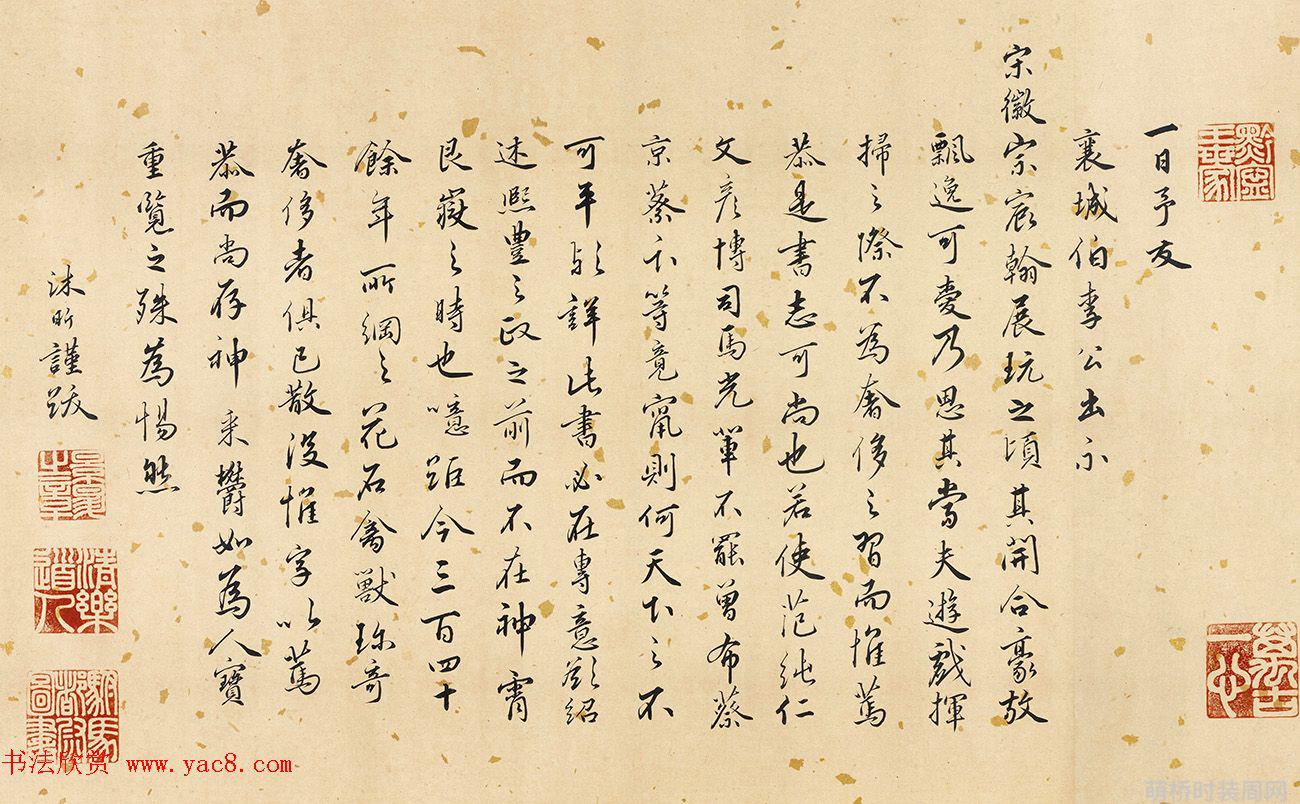 一日予友
襄城伯李公出示
宋徽宗宸翰展玩之頃其開合豪放
飄逸可愛乃思其當夫遊戲揮
掃之際不為奢侈之習而惟篤
恭是書志可尚也若使范純仁
文彥博司馬光輩不罷曾布蔡
京蔡卞等竟甯則何天下之不
可平歟詳此書必在專意欲紹
述熙豐之政之前而不在神霄
艮嶽之時也噫距今三百四十
餘年所綱之花石禽獸珍奇
奢侈者俱已散沒惟字以篤
恭而尚存神采欝如為人寶
重覽之殊為惕然
沐昕謹跋
清樂道人
駙馬都尉圖書
书法欣赏 www.yac8.com
萌桥时装周网